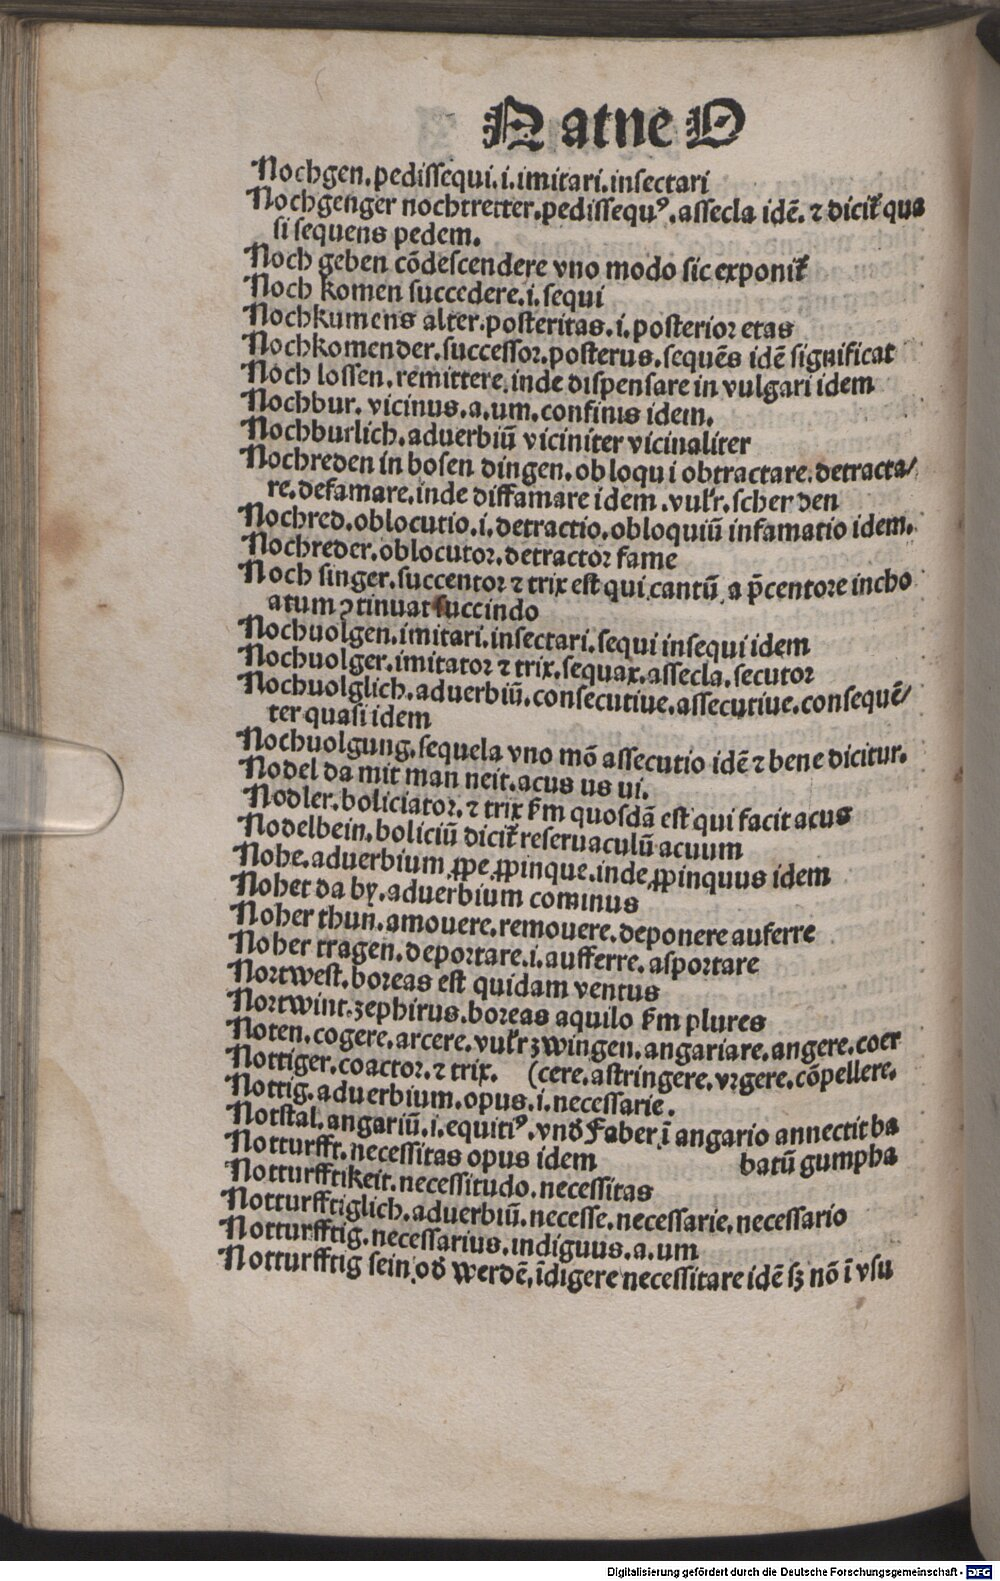 N atne O
Nochgen.pedisſequi.i.imitari.inſectari
Nochgenger nochtretter.pedisſequꝰ.aſſecla idē.⁊ dicit᷑ qua
ſi ſequens pedem.
Noch geben cōdeſcendere vno modo ſic exponit᷑
Noch komen ſuccedere.i.ſequi
Nochkumens alter.poſteritas.i.poſterioꝛ etas
Nochkomender.ſucceſſoꝛ.poſterus.ſequēs idē ſignificat
Noch loſſen.remittere.inde diſpenſare in vulgari idem
Nochbur.vicinus.a.um.confinis idem.
Nochburlich.aduerbiū viciniter vicinaliter
Nochreden in boſen dingen.obloqui obtractare.detracta/
re.defamare.inde diffamare idem.vul᷑r.ſcher den
Nochred.oblocutio.i.detractio.obloquiū infamatio idem.
Nochreder.oblocutoꝛ.detractoꝛ fame
Noch ſinger.ſuccentoꝛ ⁊ trix eſt qui cantū a p̄centoꝛe incho
atum ꝯtinuat ſuccindo
Nochuolgen.imitari.inſectari.ſequi inſequi idem
Nochuolger.imitatoꝛ ⁊ trix.ſequax.aſſecla.ſecutoꝛ
Nochuolglich.aduerbiū.conſecutiue.aſſecutiue.conſequē/
ter quaſi idem
Nochuolgung.ſequela vno mō aſſecutio idē ⁊ bene dicitur.
Nodel da mit man neit.acus us ui.
Nodler.boliciatoꝛ.⁊ trix ẜm quoſdā eſt qui facit acus
Nodelbein.boliciū dicit᷑ reſeruaculū acuum
Nohe.aduerbium ꝓpe ꝓpinque.inde ꝓpinquus idem
Nohet da by.aduerbium cominus
Noher thun.amouere.remouere.deponere auferre
Noher tragen.deportare.i.aufferre.aſpoꝛtare
Noꝛtweſt.boꝛeas eſt quidam ventus
Noꝛtwint.zephirus.boꝛeas aquilo ẜm plures
Noten.cogere.arcere.vul᷑r zwingen.angariare.angere.coer
Nottiger.coactoꝛ.⁊ trix. (cere.aſtringere.vꝛgere.cōpellere.
Nottig.aduerbium.opus.i.neceſſarie.
Notſtal.angariū.i.equitiꝰ.vnđ Faber ī angario annectit ba
Notturfft.neceſſitas opus idem batū gumpha
Notturfftikeit.neceſſitudo.neceſſitas
Notturfftiglich.aduerbiū.neceſſe.neceſſarie.neceſſario
Notturfftig.neceſſarius.indiguus.a.um
Notturfftig ſein ođ werdē.īdigere neceſſitare idē ſꝫ nō ī vſu
Digitalisierung gefördert durch die Deutsche Forschungsgemeinschaft - DFG